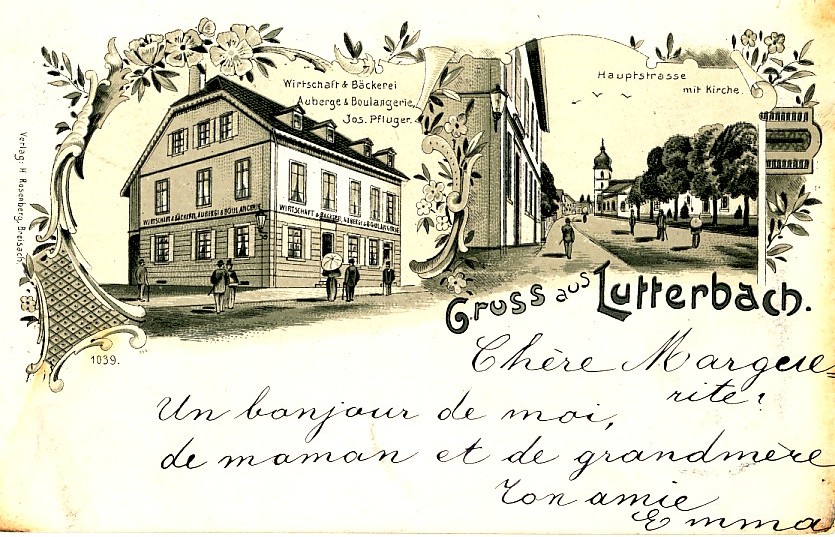 Wirtschaft & Bäckerei
Auberge & Boulangerie,
Jos. Pfluger.
Hauptstrasse
mit Kirche.
WIRTSCHAFT & BÄCKEREI, AUBERGE & BOULANGERIE
WIRTSCHAFT & BÄCKEREI, AUBERGE & BOULANGERIE
Verlag: H. Rosenberg, Breisach.
1039.
Gruss aus Lutterbach.
Chère Margue=
rite!
Un bonjour de moi,
de maman et de grandmère
Ton amie
Emma